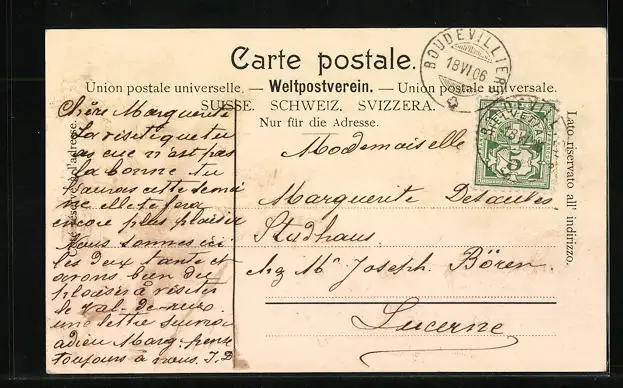 Carte postale.
Union postale universelle. — Weltpostverein. — Union postale universale.
SUISSE. SCHWEIZ. SVIZZERA.
Nur für die Adresse.
Lato riservato all' indirizzo.
BOUDEVILLIERS
18 VI 06
HELVETIA
5
Chère Marguerite
La visite que tu
as eue n'est pas
la bonne. tu
l'auras cette semai
ne elle te fera
encore plus plaisir
Nous sommes ici
les deux tante et
avons bien du
plaisir à visiter
le Val-de-Ruz.
une lettre suivra
adieu Marg. pense
toujours à nous. J. D
Mademoiselle
Marguerite Desaules
Stadhaus
chez Mr Joseph Bören
Lucerne